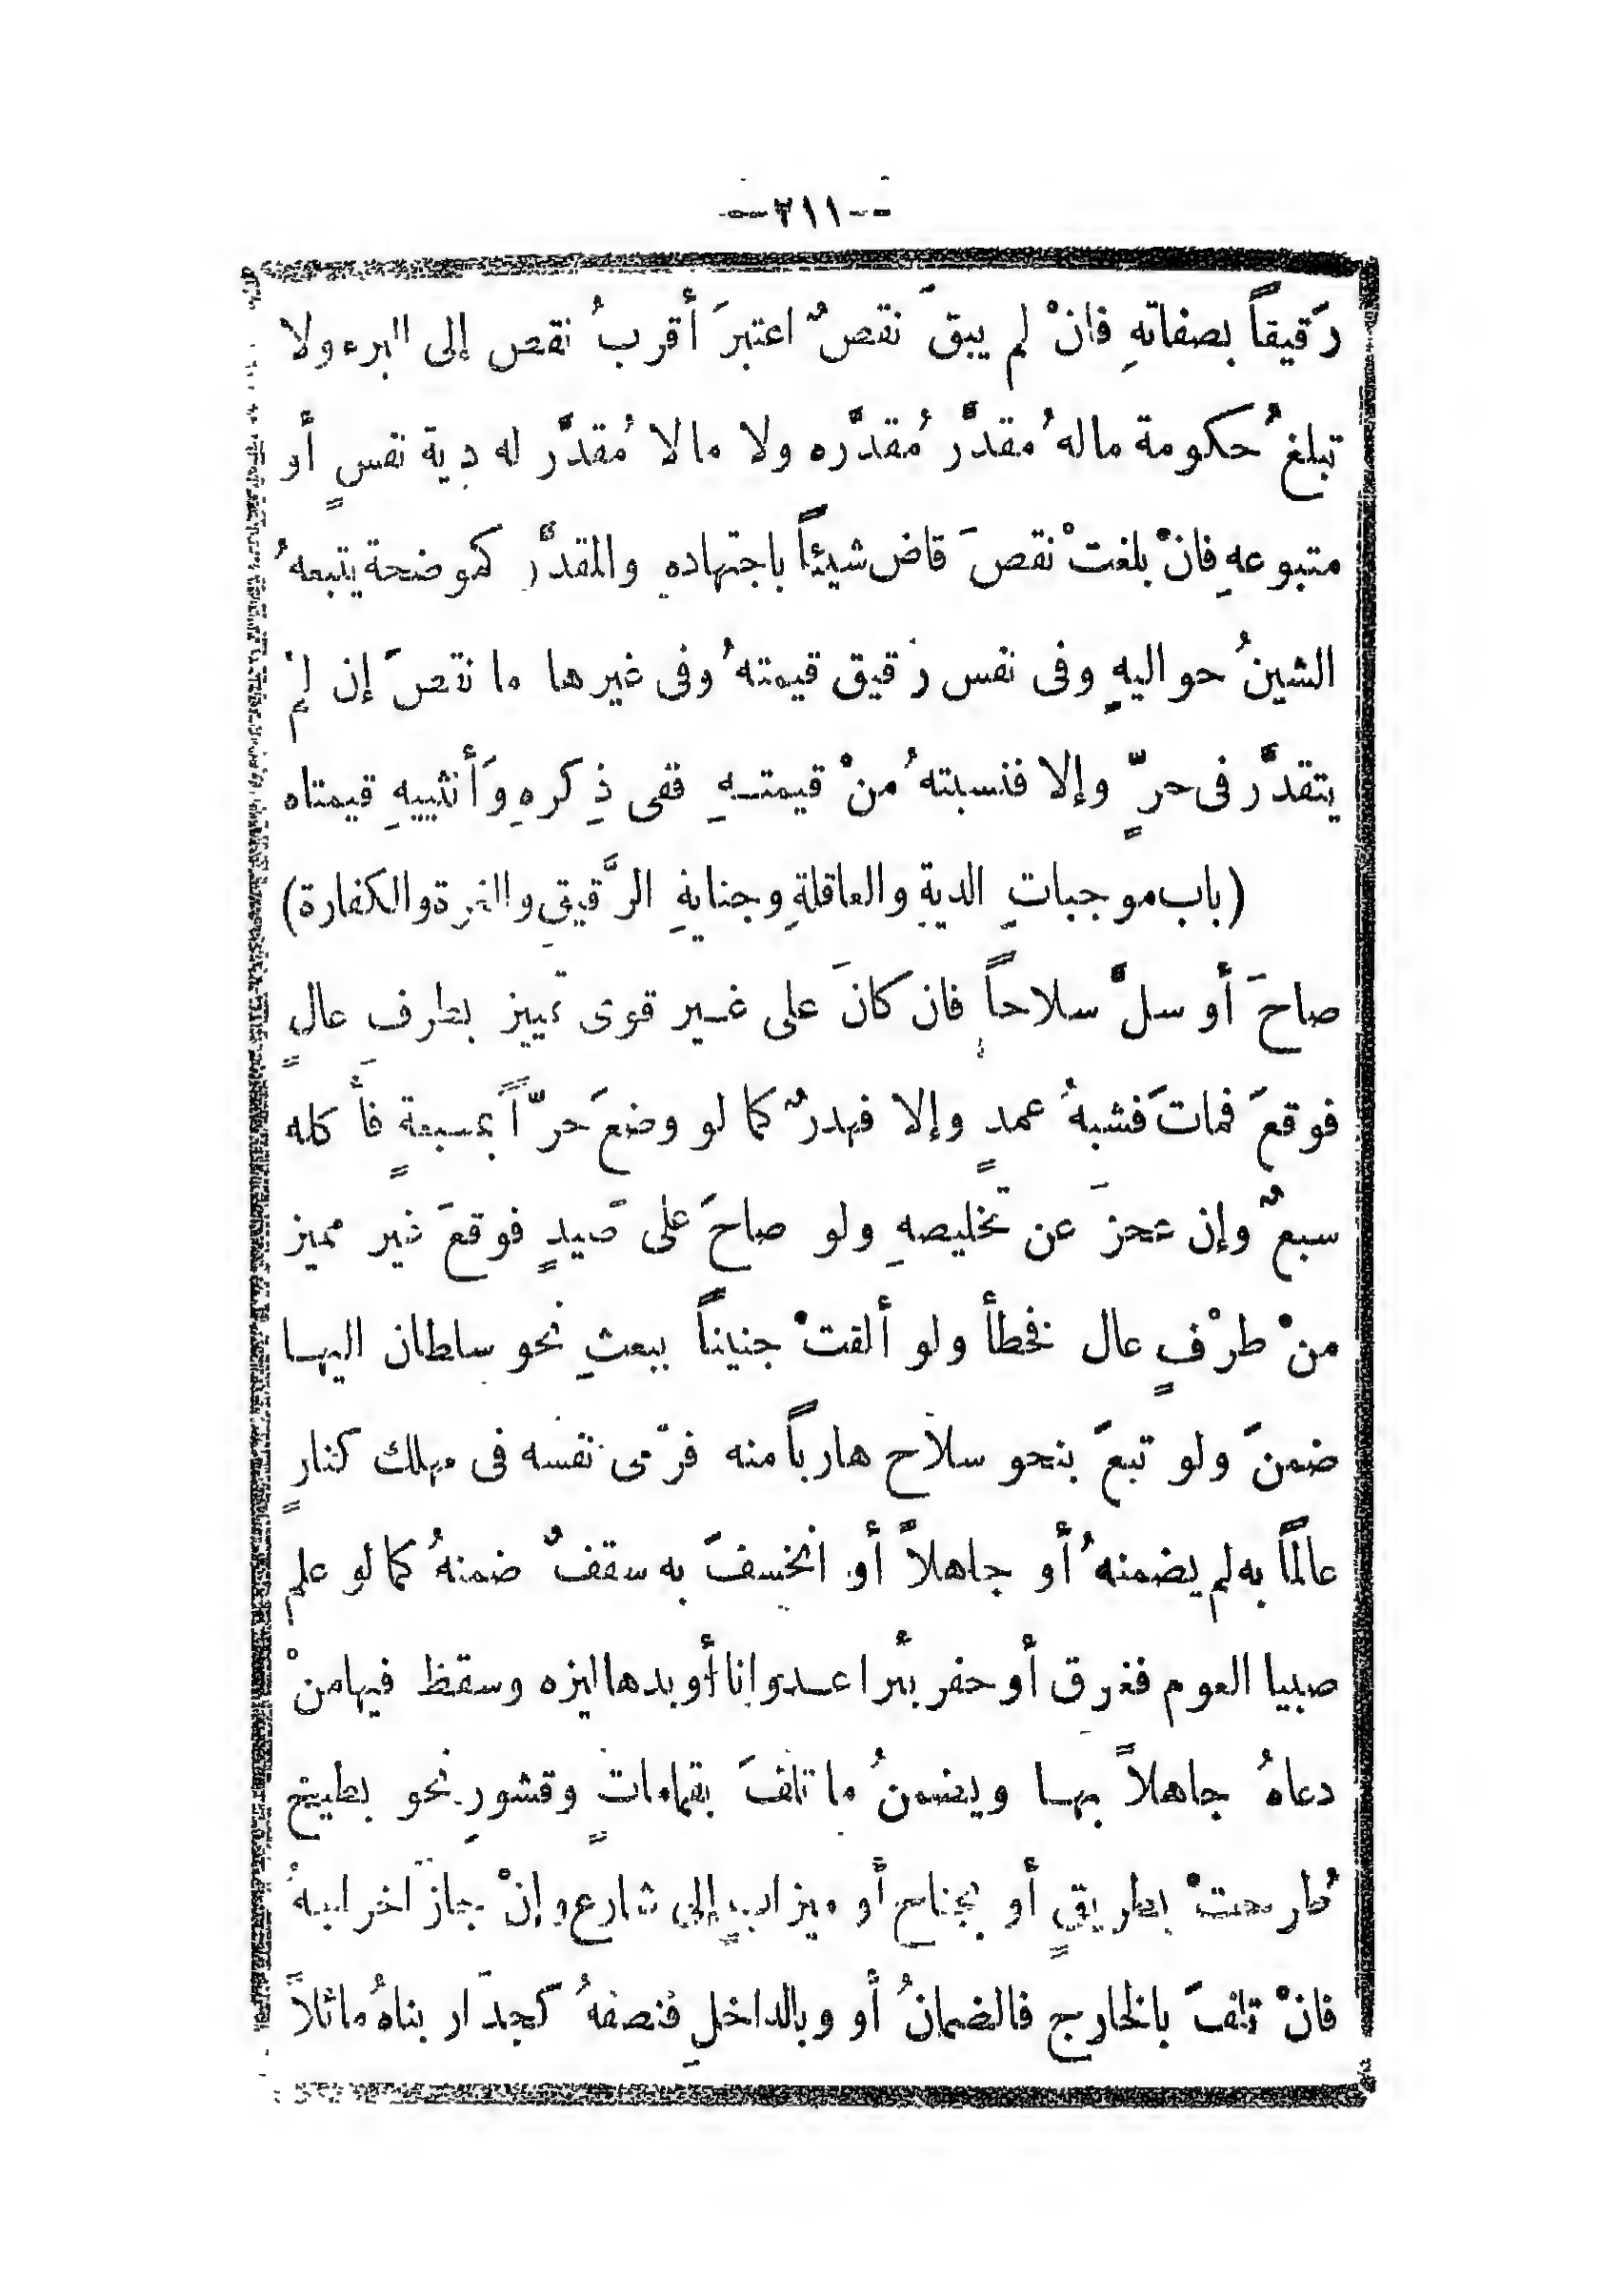 -- ٢١١ --
رَقيقاً بصفاتهِ فانْ لم يبقَ نقصٌ اعتبرَ أقربُ نقص إلى البرء ولا
تبلغُ حكومة ماله ُمقدَّر ُمقدَّره ولا مالا ُمقدَّر له دية نفسٍ أو
متبوعهِ فانْ بلغتْ نقصَ قاض شيئاً باجتهادهِ والمقدَّر كموضحة يتبعهُ
الشينُ حواليهِ وفى نفس رَقيق قيمتهُ وفى غيرها ما نقصَ إن لمْ
يتقدَّر فى حرٍّ وإلا فنسبتهُ منْ قيمتـهِ ففى ذِكرهِ وَأنثييهِ قيمتاه
(باب موجباتِ الديةِ والعاقلةِ وجنايةِ الرَّقيقِ والغرة والكفارة)
صاحَ أو سلَّ سلاحاً فان كانَ على غـير قوى تمييز بطرف عالٍ
فوقعَ فماتَ فشبهُ عمدٍ وإلا فهدرٌ كما لو وضعَ حرّاً بمسبعةٍ فأَكله
سبعٌ وإن عجزَ عن تخليصهِ ولو صاحَ على صَيدٍ فوقعَ غير مميز
منْ طرْفٍ عال فخطأ ولو ألقتْ جنيناً ببعثِ نحو سلطان اليهـا
ضمنَ ولو تبعَ بنحو سلاح هارباً منه فرَمى نفسه فى مهلك كنارٍ
عالماً به لم يضمنهُ أو جاهلاً أو انخسفَ به سقفٌ ضمنهُ كما لو علم
صبيا العوم فغرق أو حفر بئرا عـدوانا أو بدهاليزه وسقط فيها منْ
دعاهُ جاهلاً بهـا ويضمنُ ما تلفَ بقماماتٍ وقشورِ نحو بطيخ
ُطرحتْ بطريقٍ أو بجناح أو ميزابٍ إلى شارع وإنْ جازَ اخراجهُ
فانْ تلفَ بالخارج فالضمانُ أو وبالداخلِ فنصفهُ كجدَار بناهُ مائلاً